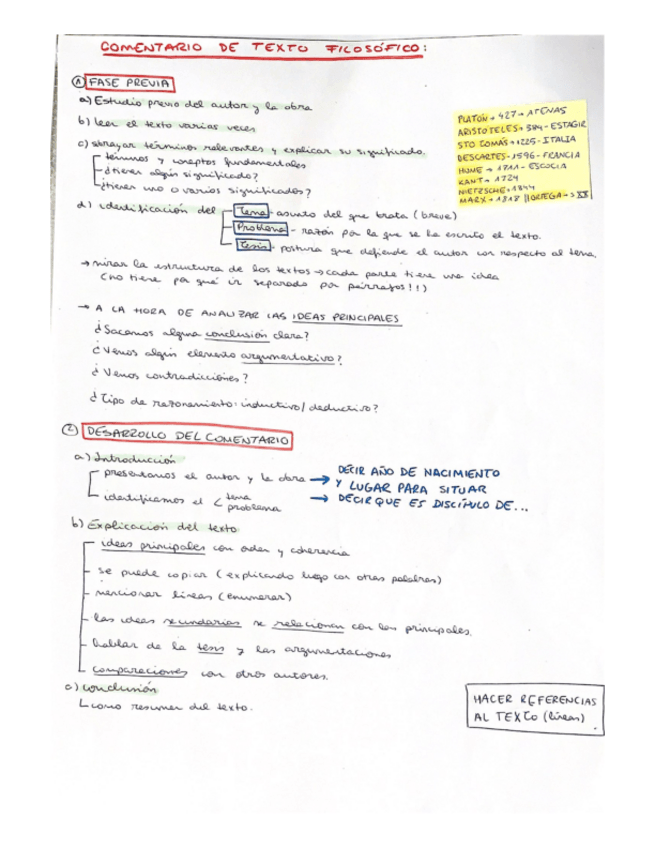 COMENTARIO DE TEXTO FILOSÓFICO:
① FASE PREVIA
a) Estudio previo del autor y la obra
b) leer el texto varias veces
c) subrayar términos relevantes y explicar su significado.
términos y conceptos fundamentales
¿tienen algún significado?
¿tienen uno o varios significados?
PLATÓN → 427 → ATENAS
ARISTÓTELES → 384 - ESTAGIR
STO TOMÁS → 1225 - ITALIA
DESCARTES - 1596 - FRANCIA
HUME → 1711 - ESCOCIA
KANT → 1724
NIETZSCHE → 1844
MARX → 1818 || ORTEGA → S XX
d) identificación del
Tema - asunto del que trata (breve)
Problema - razón por la que se ha escrito el texto.
Tesis - postura que defiende el autor con respecto al tema.
→ mirar la estructura de los textos → cada parte tiene una idea
(no tiene por qué ir separado por párrafos!!)
→ A LA HORA DE ANALIZAR LAS IDEAS PRINCIPALES
¿Sacamos alguna conclusión clara?
¿Vemos algún elemento argumentativo?
¿Vemos contradicciones?
¿Tipo de razonamiento: inductivo/deductivo?
② DESARROLLO DEL COMENTARIO
a) Introducción
presentamos el autor y la obra → DECIR AÑO DE NACIMIENTO
Y LUGAR PARA SITUAR
identificamos el < tema
problema
→ DECIR QUE ES DISCÍPULO DE...
b) Explicación del texto
ideas principales con orden y coherencia
se puede copiar (explicando luego con otras palabras)
mencionar líneas (enumerar)
las ideas secundarias se relacionan con las principales.
hablar de la tesis y las argumentaciones
comparaciones con otros autores.
c) conclusión
como resumen del texto.
HACER REFERENCIAS
AL TEXTO (líneas)